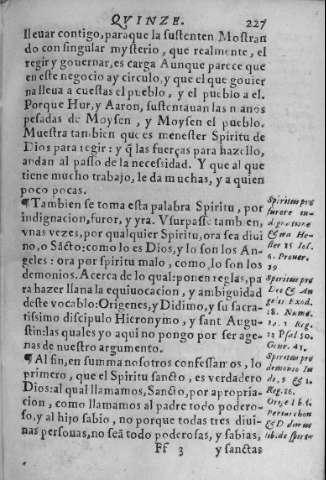 QVINZE. 227
lleuar contigo, paraque la sustenten Mostran
do con singular mysterio, que realmente, el
regir y gouernar, es carga Aunque parece que
en este negocio ay circulo, y que el que gouier
na lleua a cuestas el pueblo, y el pueblo a el.
Porque Hur, y Aaron, sustentauan las manos
pesadas de Moysen, y Moysen el pueblo.
Muestra tambien que es menester Spiritu de
Dios para regir: y q̃ las fuerças para hazello,
andan al passo de la necessidad. Y que al que
tiene mucho trabajo, le da muchas, y a quien
poco pocas.
¶Tambien se toma esta palabra Spiritu, por
indignacion, furor, y yra. Vsurpasse tambien,
vnas vezes, por qualquier Spiritu, ora sea diui
no, o Sãcto: como lo es Dios, y lo son los An-
geles: ora por spiritu malo, como lo son los
demonios. Acerca de lo qual: ponen reglas, pa
ra hazer llana la equiuocacion, y ambiguidad
deste vocablo: Origenes, y Didimo, y su sacra-
tissimo discipulo Hieronymo, y sant Augu-
stin: las quales yo aqui no pongo por ser age-
nas de nuestro argumento.
¶Al fin, en summa nosotros confessamos, lo
primero, que el Spiritu sancto, es verdadero
Dios: al qual llamamos, Sancto, por apropria-
cion, como llamamos al padre todo podero-
so, y al hijo sabio, no porque todas tres diui-
nas personas, no seã todo poderosas, y sabias,
Ff 3 y sanctas
Spiritus pro
furore in-
dignatione
6. Prouer.
29
Spiritus pro
Deo & An-
gelo Exod.
28. Nume.
Spiritus pro
demonio Iu
Reg. 16.
Periarchon
& Didimus
lib. de spiritu